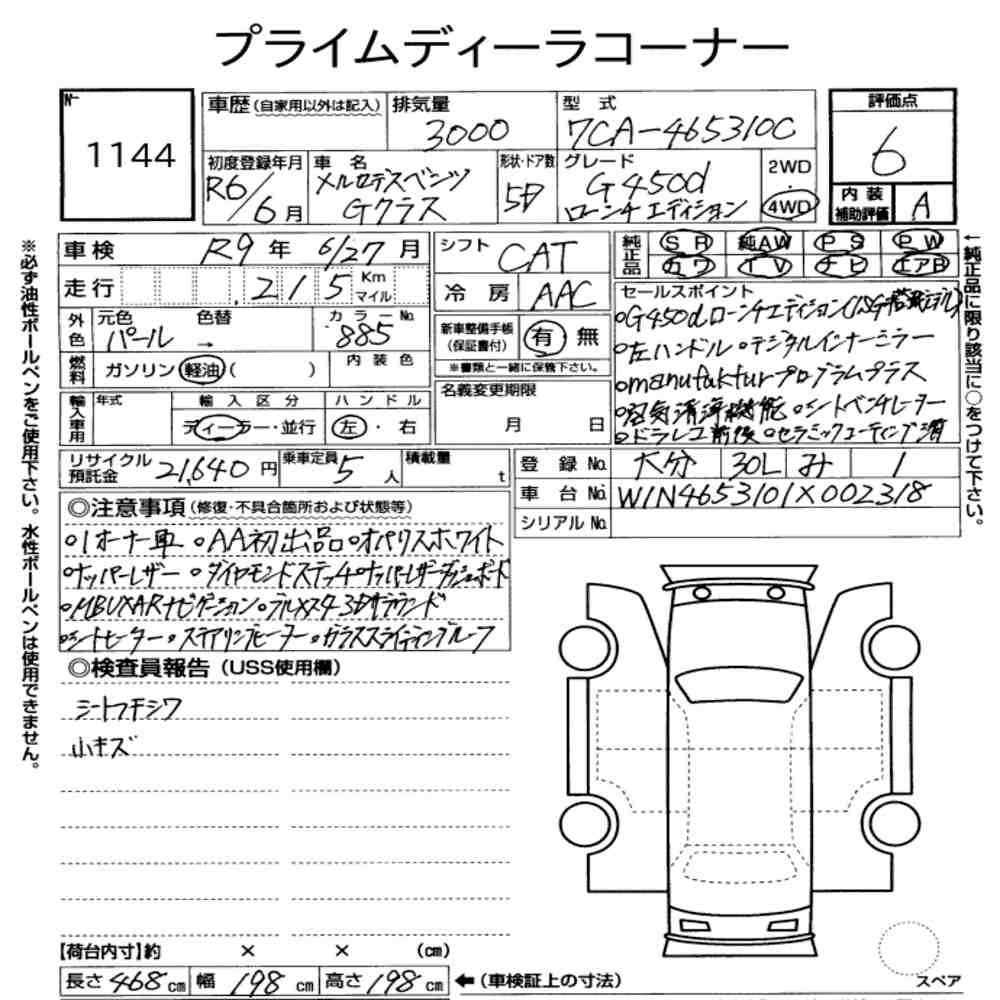 プライムディーラコーナー
No.
1144
車歴(自家用以外は記入)
排気量
3000
型 式
7CA-465310C
評価点
6
初度登録年月
R6/6月
車 名
メルセデスベンツ
Gクラス
形状・ドア数
5D
グレード
G450d
ローンチエディション
2WD
・
4WD
内装
補助評価
A
車検 R9年 6/27月
シフト CAT
純正品
SR 純AW PS PW
カワ TV ナビ エアB
走行 215 Km マイル
冷房 AAC
外色 元色 色替 カラーNo.
パール → 885
新車整備手帳
(保証書付)
有 無
※書類と一緒に保管下さい。
燃料 ガソリン 軽油 ( )
内装色
名義変更期限
月 日
輸入車用 年式 輸入区分 ハンドル
ディーラー・並行 左・右
セールスポイント
○G450dローンチエディション(ISG搭載モデル)
○左ハンドル ○デジタルインナーミラー
○manufakturプログラムプラス
○空気清浄機能 ○シートベンチレーター
○ドラレコ前後 ○セラミックコーティング済
リサイクル預託金 21,640円 乗車定員 5人 積載量 t
登録No. 大分 30L み 1
車台No. W1N4653101X002318
シリアルNo.
◎注意事項(修復・不具合箇所および状態等)
○1オーナー車 ○AA初出品 ○オパリスホワイト
○ナッパレザー ○ダイヤモンドステッチナッパレザーダッシュボード
○MBUXARナビゲーション ○ブルメスター3Dサラウンド
○シートヒーター ○ステアリングヒーター ○ガラススライディングルーフ
◎検査員報告(USS使用欄)
シートフチシワ
小キズ
【荷台内寸】約 × × (cm)
長さ 468cm 幅 198cm 高さ 198cm ←(車検証上の寸法)
スペア
※必ず油性ボールペンをご使用下さい。水性ボールペンは使用できません。
←純正品に限り該当に○をつけて下さい。